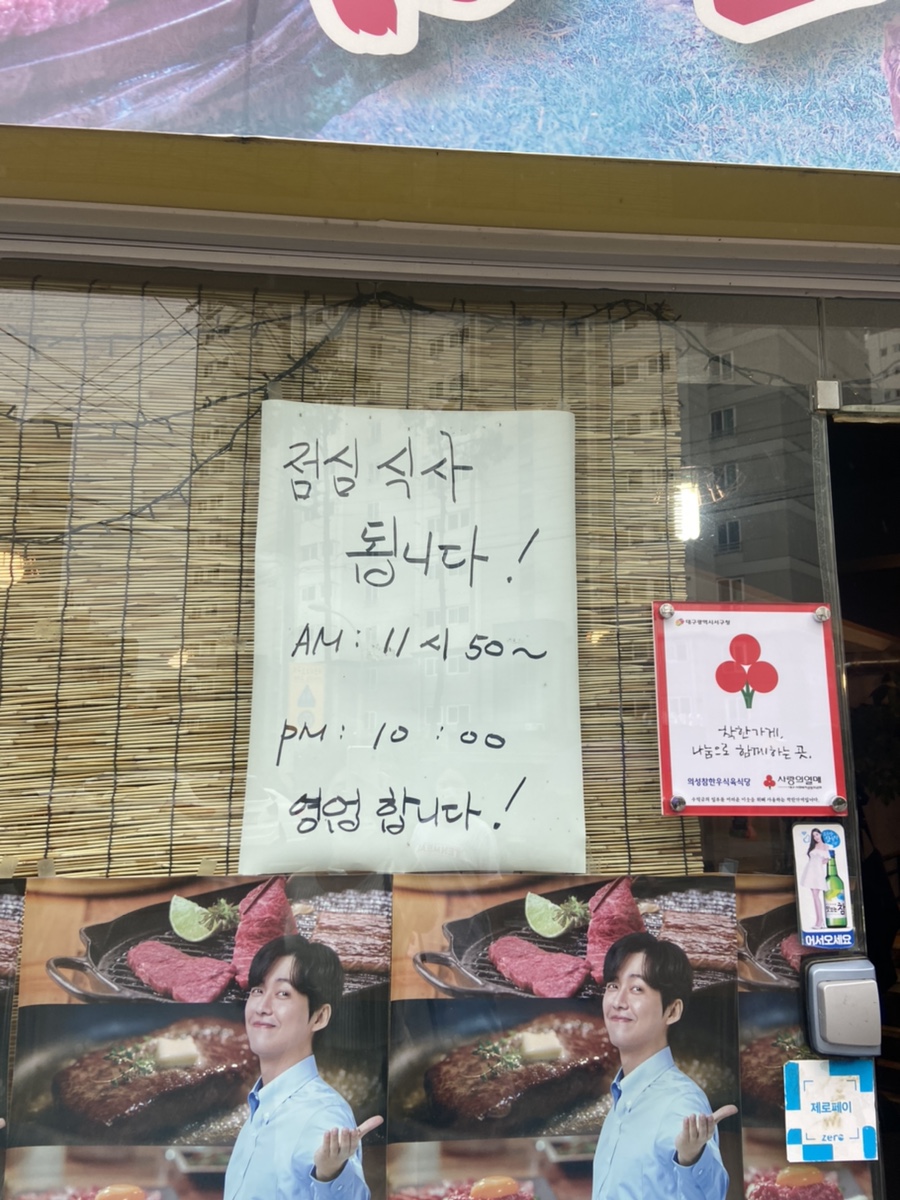 점심 식사
됩니다!
AM: 11시 50~
PM: 10:00
영업 합니다!
대구광역시서구청
착한가게.
나눔으로 함께하는 곳.
의성참한우식육식당
사랑의열매
어서오세요
제로페이
zero